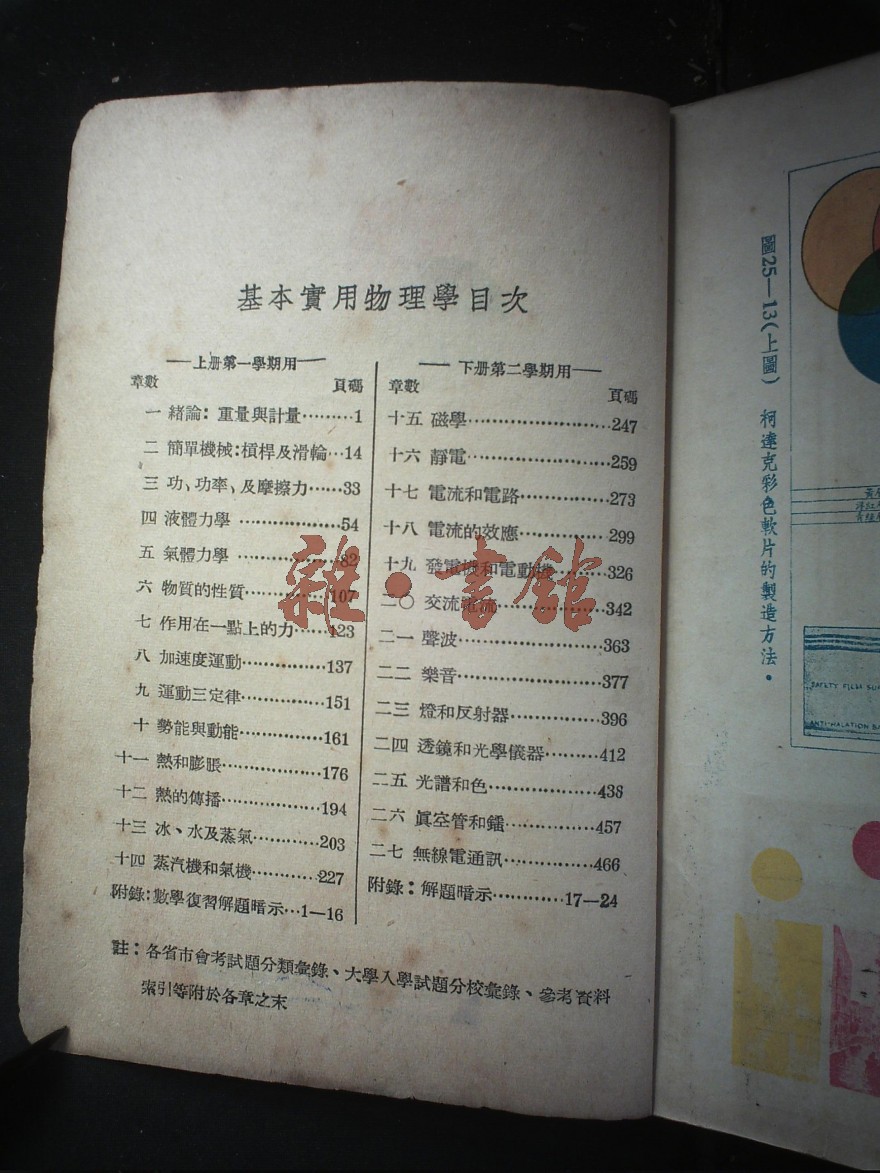 基本實用物理學目次
上册第一學期用
章數 頁碼
一 緒論：重量與計量………1
二 簡單機械：槓桿及滑輪…14
三 功、功率、及摩擦力……33
四 液體力學………………54
五 氣體力學………………82
六 物質的性質……………107
七 作用在一點上的力……123
八 加速度運動……………137
九 運動三定律……………151
十 勢能與動能……………161
十一 熱和膨脹……………176
十二 熱的傳播……………194
十三 冰、水及蒸氣………203
十四 蒸汽機和氣機………227
附錄：數學復習解題暗示…1—16
下册第二學期用
章數 頁碼
十五 磁學…………………247
十六 靜電…………………259
十七 電流和電路…………273
十八 電流的效應…………299
十九 發電機和電動機……326
二〇 交流電流……………342
二一 聲波…………………363
二二 樂音…………………377
二三 燈和反射器…………396
二四 透鏡和光學儀器……412
二五 光譜和色……………438
二六 眞空管和鐳…………457
二七 無線電通訊…………466
附錄：解題暗示…………17—24
註：各省市會考試題分類彙錄、大學入學試題分校彙錄、參考資料
索引等附於各章之末
雜·書館
圖25—13(上圖) 柯達克彩色軟片的製造方法．
SAFETY FILM SU
ANTI-HALATION BA